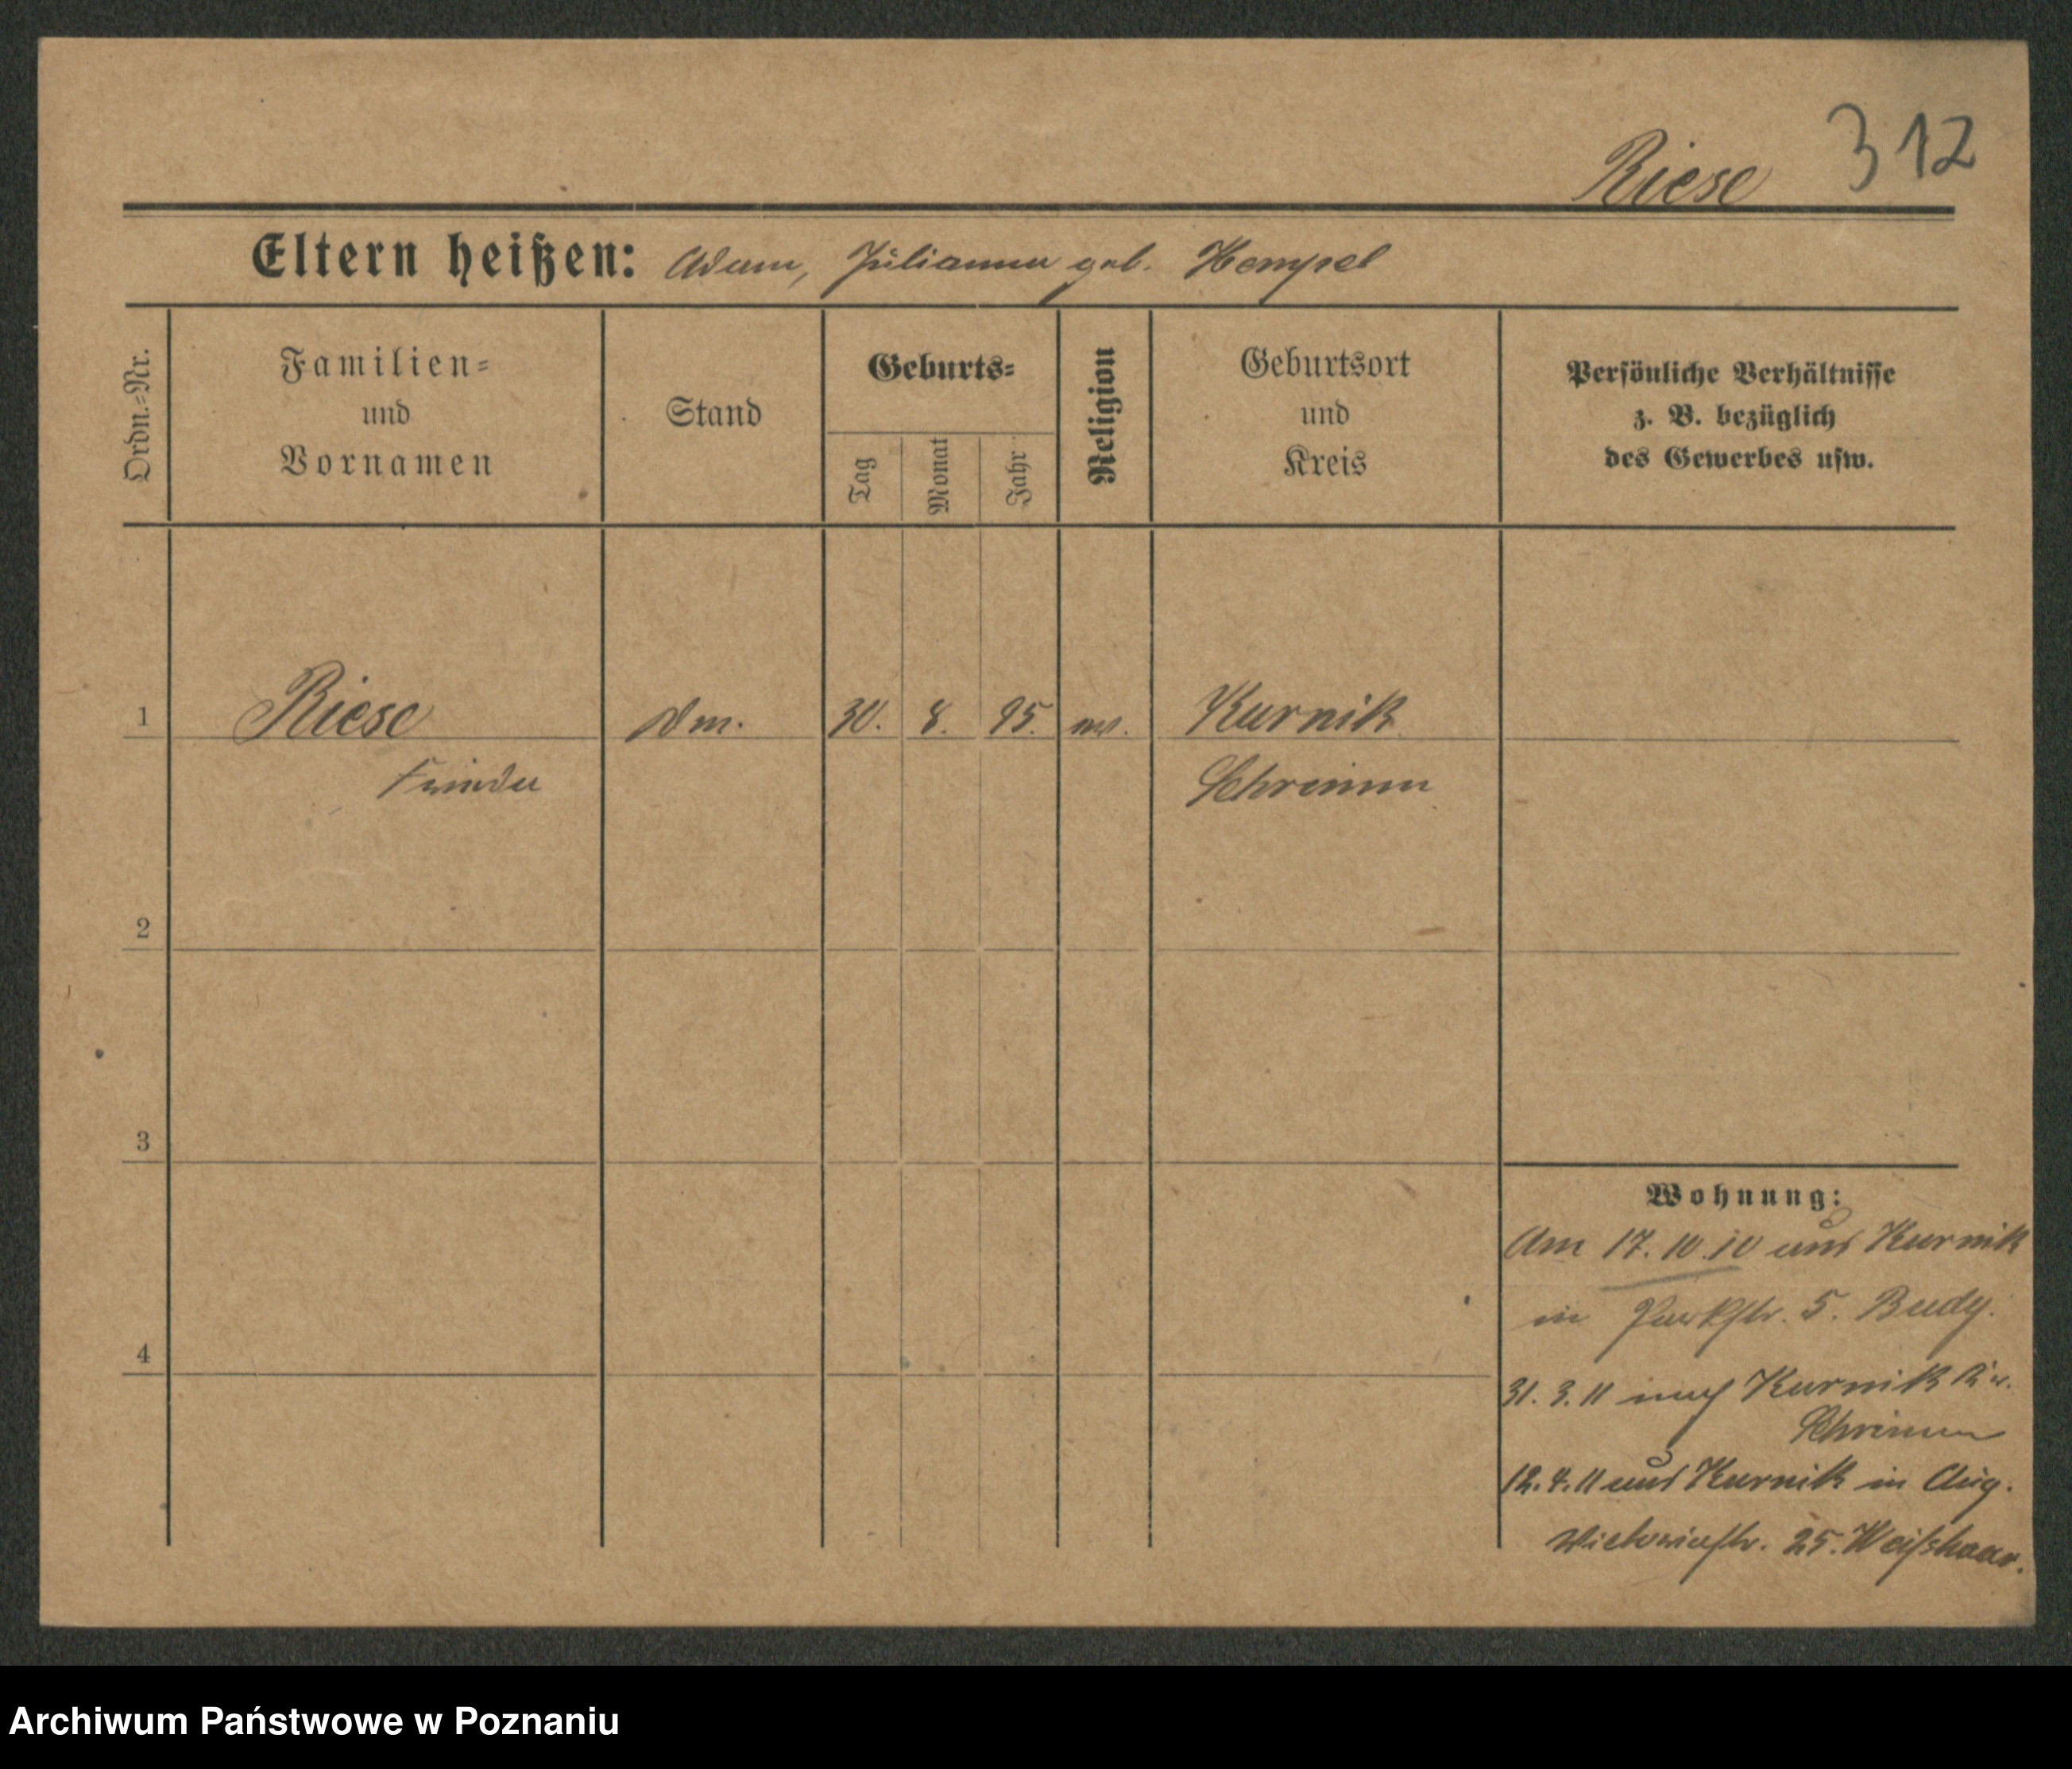 312
Riese
Eltern heißen: Adam, Julianna geb. Hempel
Ordn.-Nr.
Familien-
und
Vornamen
Stand
Geburts-
Tag
Monat
Jahr
Religion
Geburtsort
und
Kreis
Persönliche Verhältnisse
z. B. bezüglich
des Gewerbes usw.
1
Riese
30. 8. 95.
Kurnik
Frieda
Schrimm
2
3
4
Wohnung:
Am 17.10.10 aus Kurnik
in Parkstr. 5. Budy.
31.3.11 nach Kurnik
Schrimm
12.4.11 aus Kurnik in Aug.
Victoriastr. 25. Weißhaar.
Archiwum Państwowe w Poznaniu